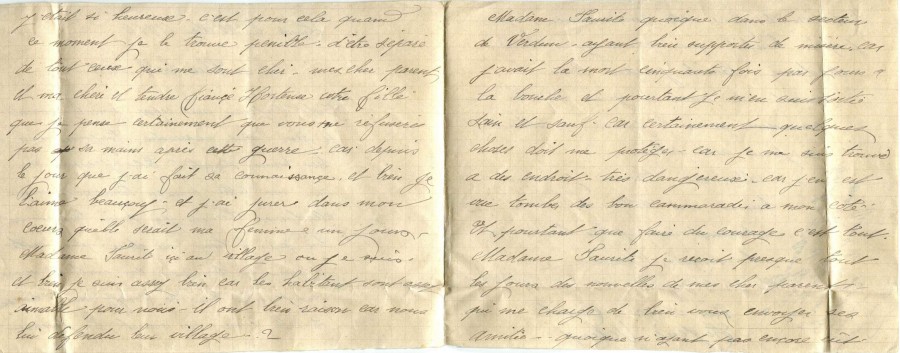 j'etait si heureux. c'est pour cela quand
ce moment je le trouve penible. d'être séparé
de tout ceux qui me sont cher. mes cher parent
et ma chère et tendre fiançé Hortense votre fille
que je pense certainement que vous me refuseris
pas sa mains après cette guerre. car depuis
le jour que j'ai fait sa connaissance. et bien je
l'aime beaucoup. et j'ai jurer dans mon
coeur qu'elle serait ma femme un jour.
Madame ici au village ou je suis.
et bien je suis assez bien car les habitant sont assez
aimable pour nous. il ont bien raison car nous
lui défendu leur village. ?
Madame quoique dans le secteur
de Verdun. ayant bien supporter de misère. car
j'avait la mort cinquante fois par jour a
la bouche et pourtant je m'en suis
sain et sauf. car certainement quelques
choses doit me protéger. car je me suis trouvé
a des endroit très dangereux. car j'en est
vue tomber des bon cammarades a mon côté
Et pourtant que faire du courage c'est tout.
Madame je reçoit presque tout
les jours des nouvelles de mes cher parent.
qui me charge de bien vous envoyer ses
amitiés. quoique n'ayant pas encore